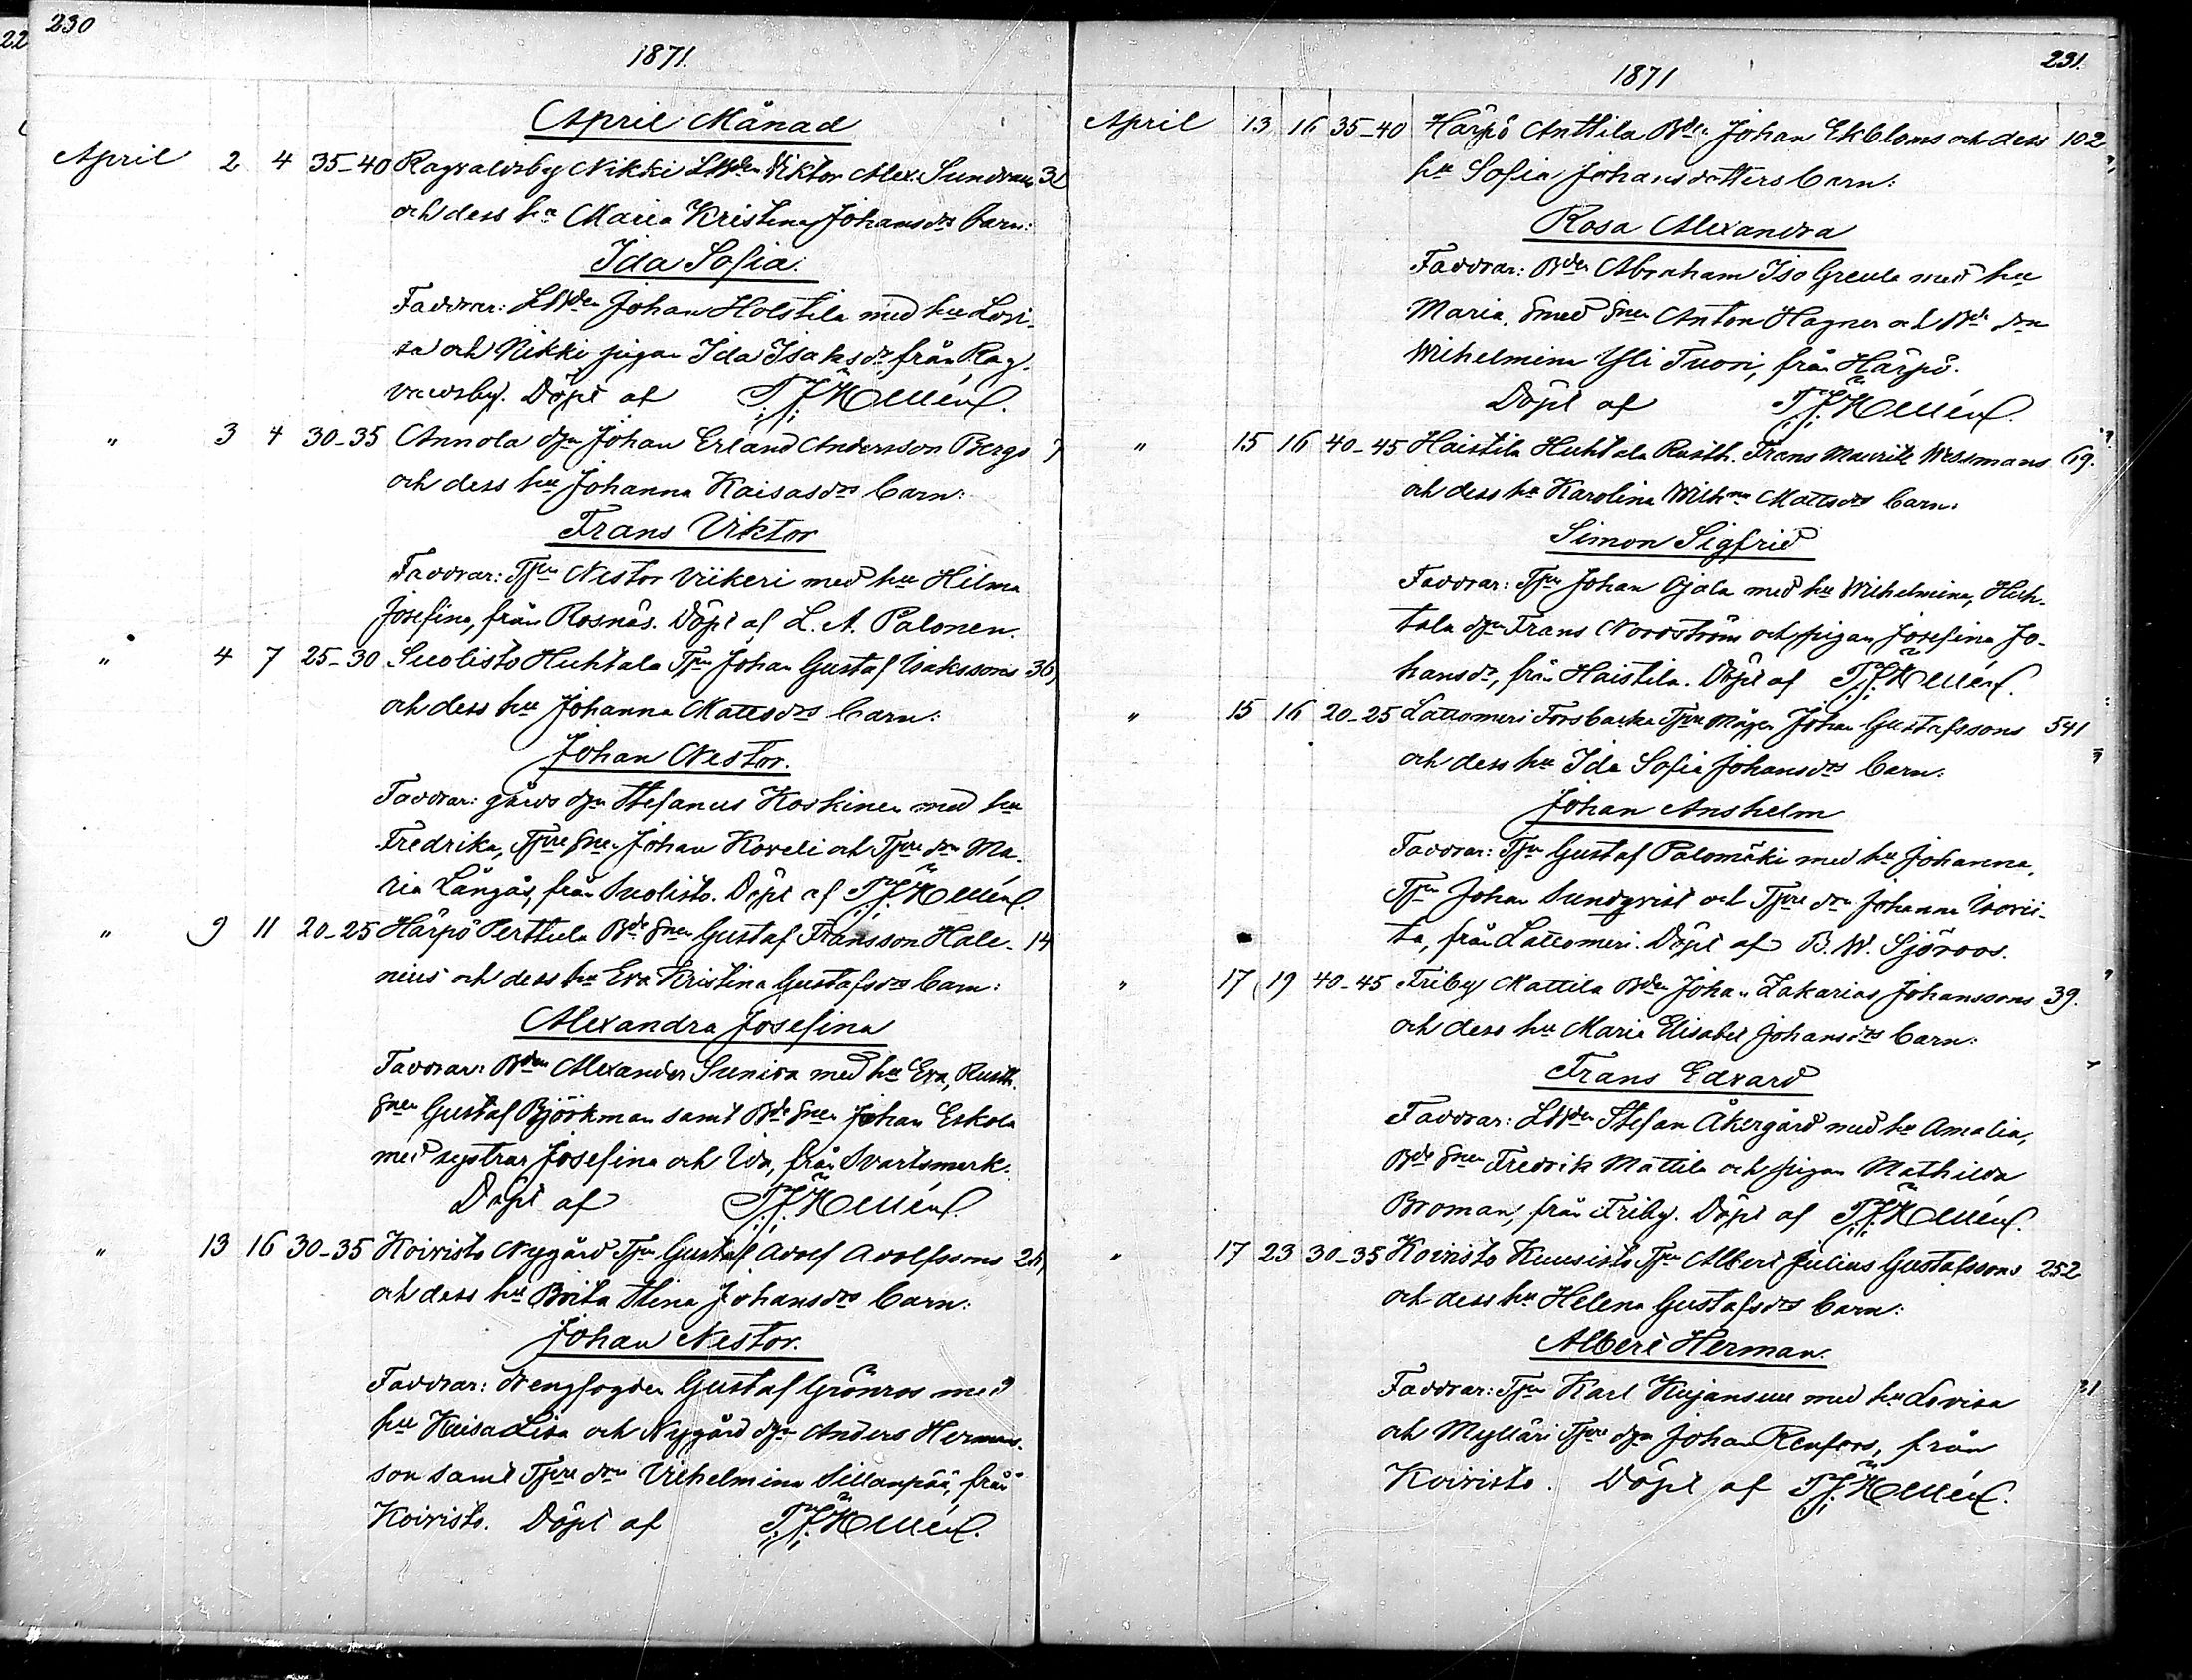 230
1871.
April Månad
April 2 4 35-40 Ragvaldsby Nikki Ldbden Viktor Alex. Sundvans 3
och dess hu Maria Kristina Johansdrs barn:
Ida Sofia.
Faddrar: Ldbden Johan Holstila med hu Lovi-
sa och Nikki pigan Ida Isaksdr, från Rag-
valdsby. Döpt af
" 3 4 30-35 Annola dgn Johan Erland Andersson Bergs 7
och dess hu Johanna Kaisasdrs barn:
Frans Viktor
Faddrar: Tpn Nestor Viikeri med hu Hilma
Josefina, från Rosnäs. Döpt af L. A. Palonen.
" 4 7 25-30 Suolisto Huhtala Tpn Johan Gustaf Isakssons 36
och dess hu Johanna Mattsdrs barn:
Johan Nestor.
Faddrar: gårds dgn Stefanus Koskinen med hu
Fredrika, Tpre snen Johan Koveli och Tpre drn Ma-
ria Långås, från Suolisto. Döpt af
" 9 11 20-25 Härpö Perttula Bde snen Gustaf Fransson Hale- 14
nius och dess hu Eva Kristina Gustafsdrs barn:
Alexandra Josefina
Faddrar: Bden Alexander Sunira med hu Eva, Rusth.
snen Gustaf Björkman samt Bde snen Johan Eskola
med systrar Josefina och Ida, från Svartsmark.
Döpt af
" 13 16 30-35 Koivisto Nygård Tpn Gustaf Adolf Adolfssons 2
och dess hu Brita Stina Johansdrs barn:
Johan Nestor.
Faddrar: Nengfogden Gustaf Grönros med
hu Kaisa Lisa och Nygård dgn Anders Hermans-
son samt Tpre drn Vilhelmina Sillanpää, från
Koivisto. Döpt af
231.
1871
April 13 16 35-40 Härpö Anttila Bden Johan Ekbloms och dess 102
hu Sofia Johansdotters barn:
Rosa Alexandra
Faddrar: Bden Abraham Iso Greula med hu
Maria, Smed snen Anton Hagner och Bde drn
Wilhelmina Yli Tuori, från Härpö.
Döpt af
" 15 16 40-45 Haistila Huhtala Rusth. Frans Maurits Wessmans 69.
och dess hu Karolina Wilhna Mattsdrs barn:
Simon Sigfrid
Faddrar: Tpn Johan Ojala med hu Wilhelmina, Huh-
tala dgn Frans Nordström och pigan Josefina Jo-
hansdr, från Haistila. Döpt af
" 15 16 20-25 Lattomeri Forsbacka Tpre mågen Johan Gustafssons 541
och dess hu Ida Sofia Johansdrs barn:
Johan Anshelm
Faddrar: Tpn Gustaf Palomäki med hu Johanna,
Tpn Johan Sundqvist och Tpre drn Johanna Isovii-
ta, från Lattomeri. Döpt af B. W. Sjöroos.
" 17 19 40-45 Friby Mattila Bden Johan Zakarias Johanssons 39.
och dess hu Maria Elisabet Johansdrs barn:
Frans Edvard
Faddrar: Ldbden Stefan Åkergård med hu Amalia,
Bde snen Fredrik Mattila och pigan Mathilda
Broman, från Friby. Döpt af
" 17 23 30-35 Koivisto Kuusisto Tpn Albert Julius Gustafssons 252
och dess hu Helena Gustafsdrs barn:
Albert Herman.
Faddrar: Tpn Karl Kujansuu med hu Lovisa
och Mylläri Tpre dgn Johan Renfors, från
Koivisto. Döpt af